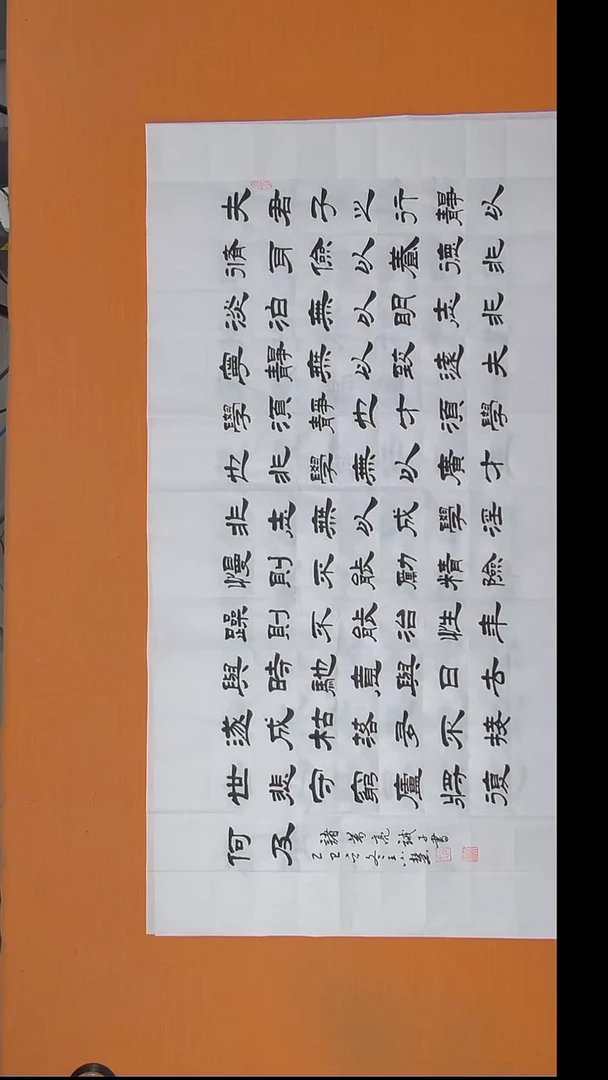 夫君子之行靜以
脩身儉以養德非
淡泊無以明志非
寧靜無以致遠夫
學須靜也才須學
也非學無以廣才
非志無以成學淫
慢則不能勵精險
躁則不能治性年
與時馳意與日去
遂成枯落多不接
世悲守窮廬將復
何及
諸葛亮誡子書
乙巳之冬王小慧